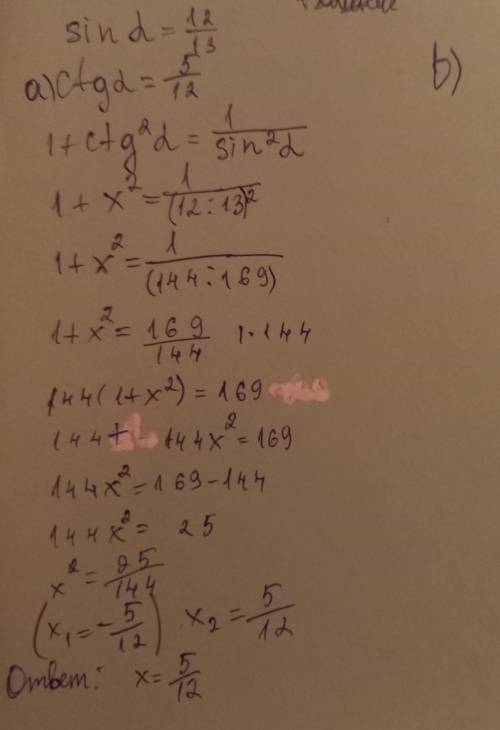 sin α = 12/13
a) ctgα = 5/12
b)
1 + ctg²α = 1/sin²α
1 + x² = 1/(12:13)²
1 + x² = 1/(144:169)
1 + x² = 169/144 |·144
144(1+x²) = 169
144 + 144x² = 169
144x² = 169-144
144x² = 25
x² = 25/144
(x₁ = -5/12) x₂ = 5/12
Ответ: x = 5/12